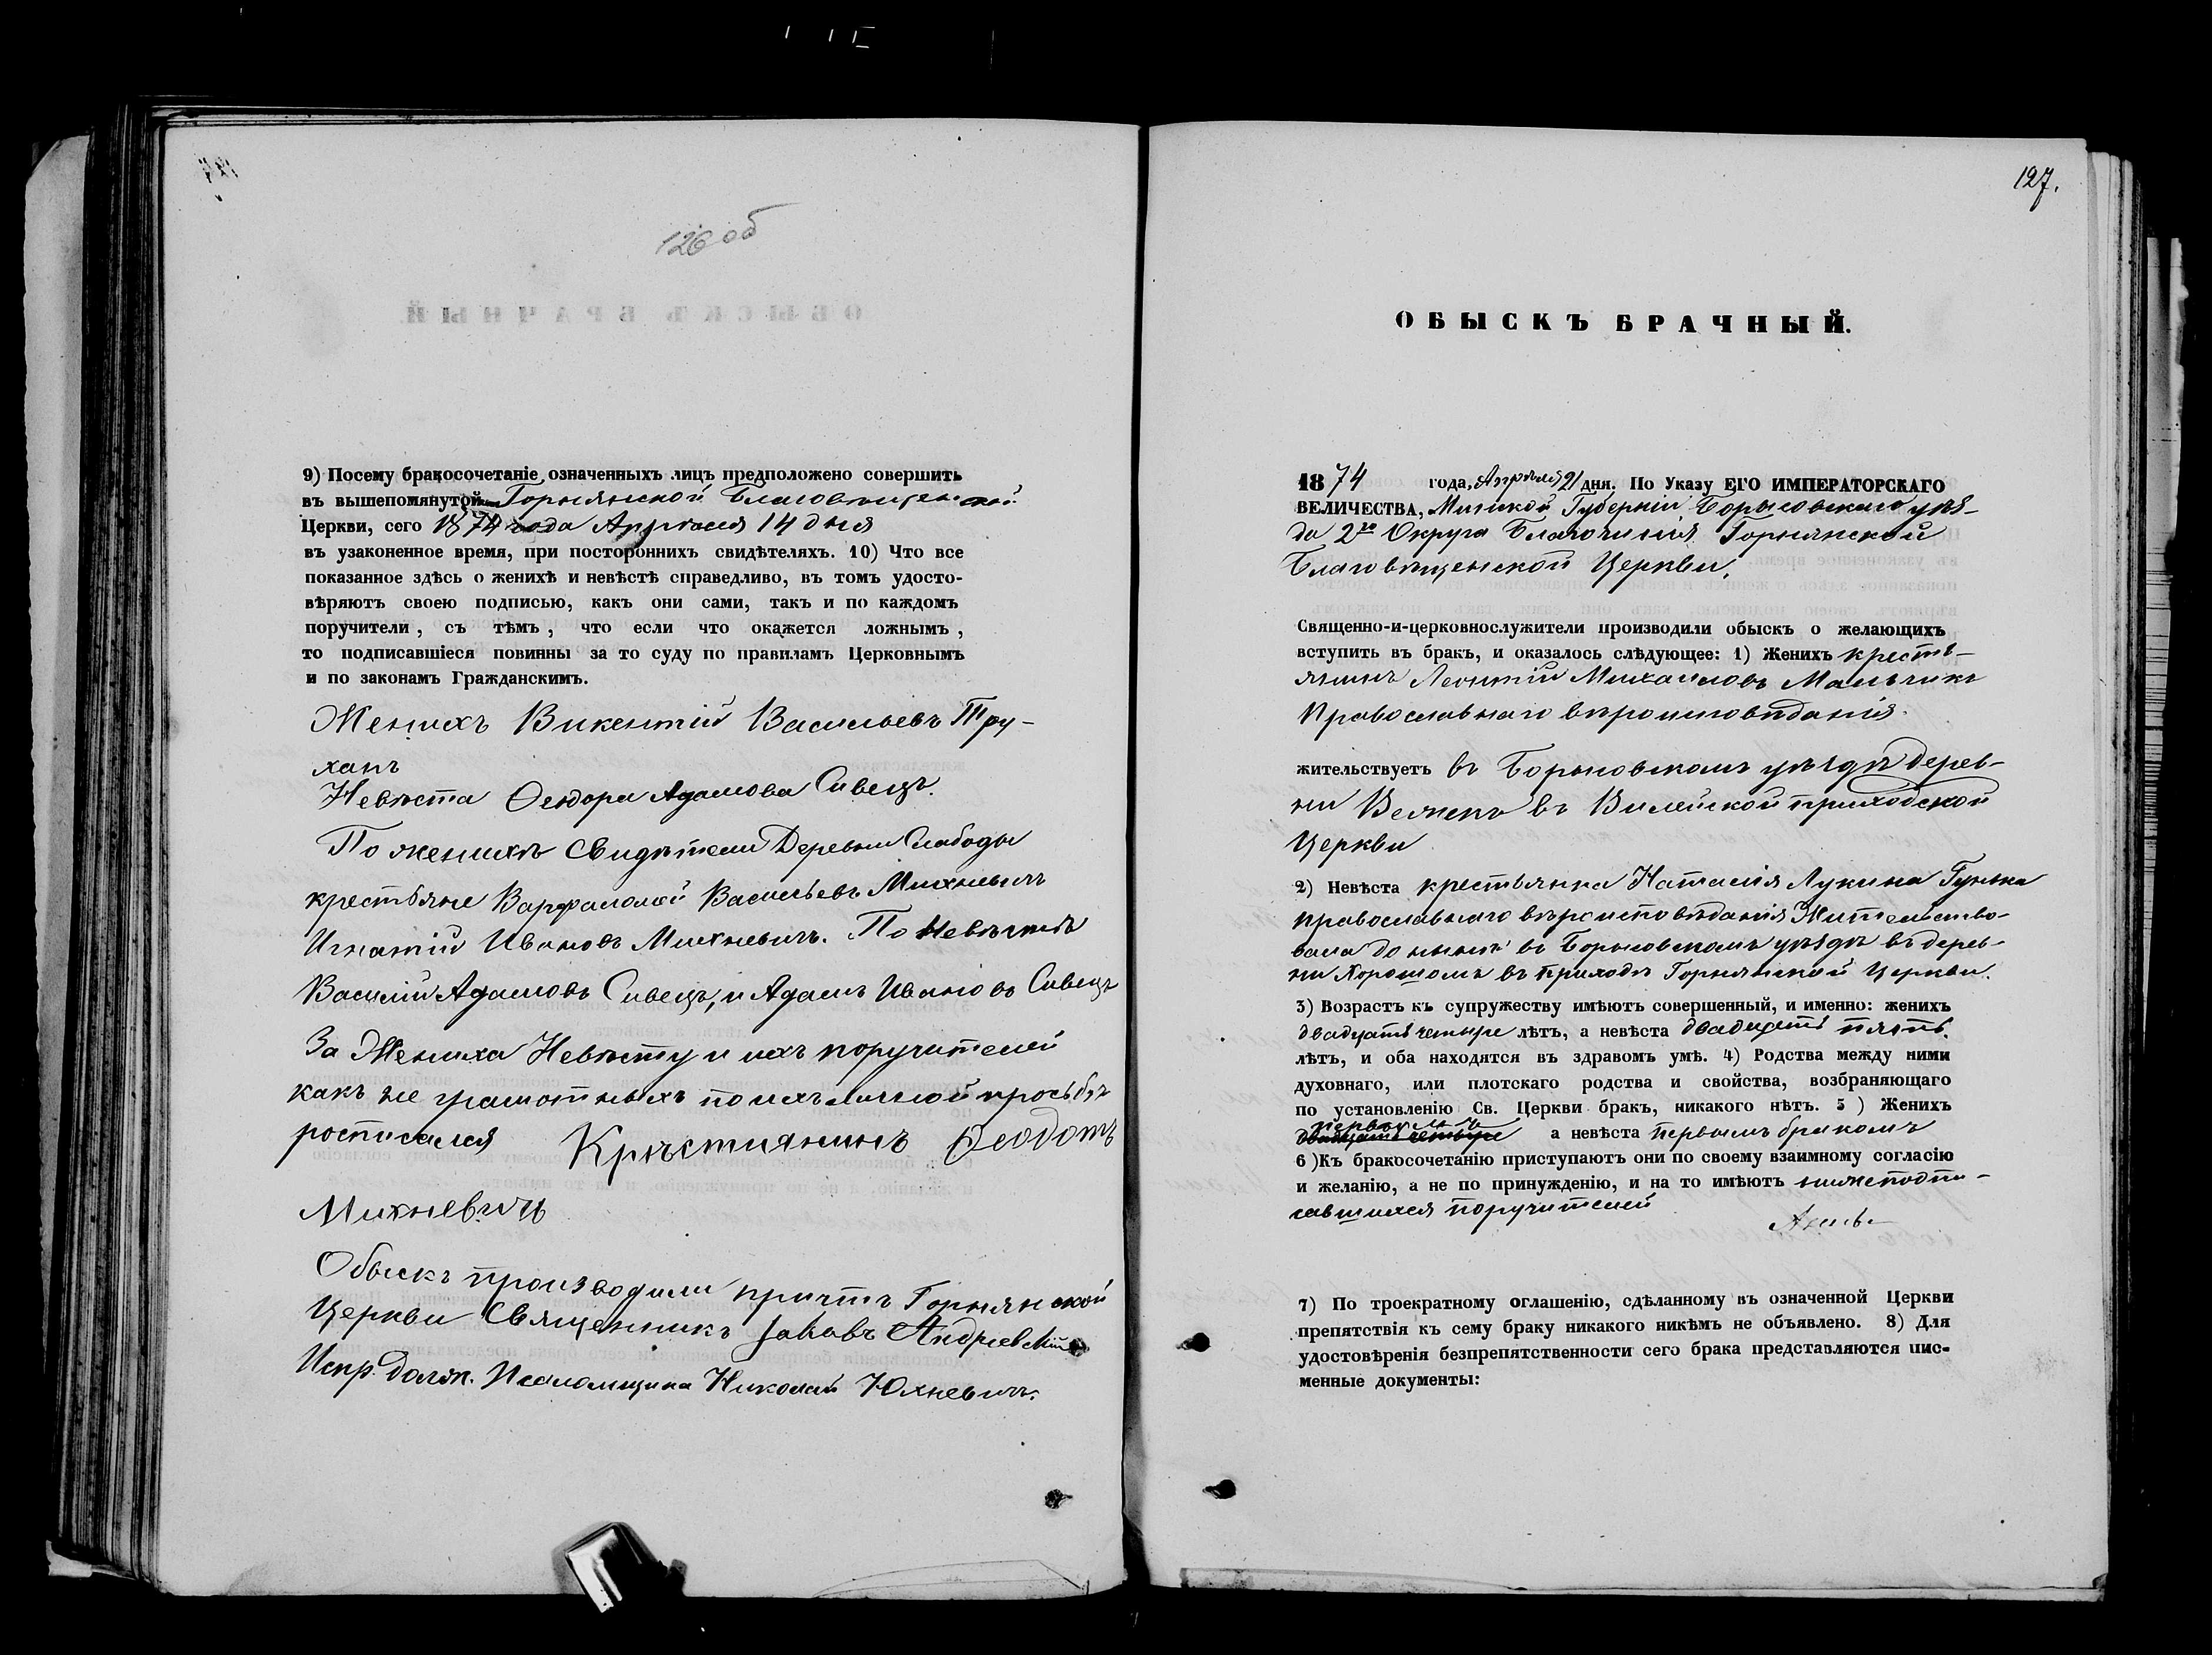 126 об
9) Посему бракосочетаніе означенныхъ лицъ предположено совершить
въ вышепомянутой Горнянской Благовѣщенской
Церкви, сего 1874 года Апрѣля 14 дня
въ узаконенное время, при постороннихъ свидѣтеляхъ. 10) Что все
показанное здѣсь о женихѣ и невѣстѣ справедливо, въ томъ удосто-
вѣряютъ своею подписью, какъ они сами, такъ и по каждомъ
поручители, съ тѣмъ, что если что окажется ложнымъ,
то подписавшіеся повинны за то суду по правиламъ Церковнымъ
и по законамъ Гражданскимъ.
Женихъ Викентій Васильевъ Тру-
ханъ
Невѣста Ѳеодора Адамова Сивецъ.
По женихѣ свидѣтели Деревни Слабоды
крестьяне Варфаломей Васильевъ Михневичъ
Игнатій Ивановъ Михневичъ. По Невѣстѣ
Василій Адамовъ Сивецъ, и Адамъ Ивановъ Сивецъ
За Жениха Невѣсту и ихъ поручителей
какъ не грамотныхъ по ихъ личной просьбѣ
росписался Крѣстиянинъ Ѳеодотъ
Михневичь
Обыскъ производили причтъ Горнянской
Церкви Священникъ Іаковъ Андріевскій
Испр. долж. Псаломщика Николай Юхневичъ.
127.
ОБЫСКЪ БРАЧНЫЙ.
1874 года, Апрѣля 21 дня. По Указу ЕГО ИМПЕРАТОРСКАГО
ВЕЛИЧЕСТВА, Минской Губерніи Борисовскаго уѣз-
да 2го Округа Благочинія Горнянской
Благовѣщенской Церкви,
Священно-и-церковнослужители производили обыскъ о желающихъ
вступить въ бракъ, и оказалось слѣдующее: 1) Женихъ кресть-
янинъ Леонтій Михаиловъ Мальчикъ
Православнаго вѣроисповѣданія.
жительствуетъ въ Борисовскомъ уѣздѣ дерев-
ни въ Вилейской приходской
Церкви
2) Невѣста крестьянка Наталія Лукина Гунька
православнаго вѣроисповѣданія Жительство-
вала до нынѣ въ Борисовскомъ уѣздѣ въ дерев-
ни Хорошомъ въ приходѣ Горнянской Церкви.
3) Возрастъ къ супружеству имѣютъ совершенный, и именно: женихъ
двадцать четыре лѣтъ, а невѣста двадцать пять
лѣтъ, и оба находятся въ здравомъ умѣ. 4) Родства между ними
духовнаго, или плотскаго родства и свойства, возбраняющаго
по установленію Св. Церкви бракъ, никакого нѣтъ. 5) Женихъ
первымъ
двадцать четыре а невѣста первымъ бракомъ
6) Къ бракосочетанію приступаютъ они по своему взаимному согласію
и желанію, а не по принужденію, и на то имѣютъ нижеподпи-
савшихся поручителей
7) По троекратному оглашенію, сдѣланному въ означенной Церкви
препятствія къ сему браку никакого никѣмъ не объявлено. 8) Для
удостовѣренія безпрепятственности сего брака представляются пис-
менные документы: